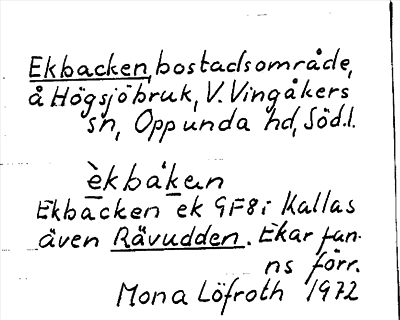 Ekbacken, bostadsområde,
å Högsjöbruk, V. Vingåkers
sn, Oppunda hd, Söd.l.
èkbákan
Ekbacken ek GF8i Kallas
även Rävudden. Ekar fan-
ns förr.
Mona Löfroth 1972